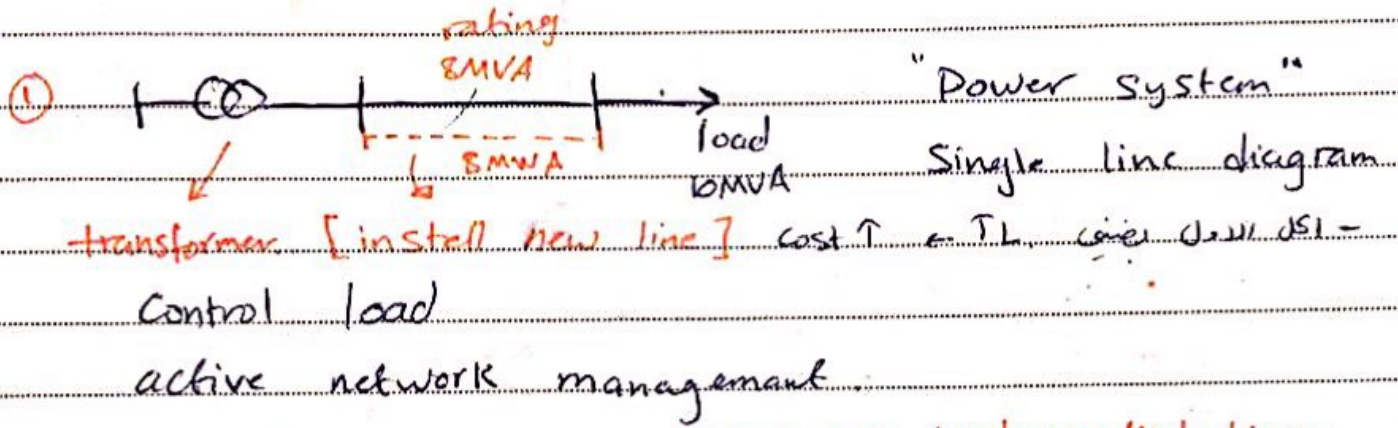 rating
8MVA
① "Power system"
load
8MWA
10MVA
Single line diagram
transformer [install new line] cost ↑ ← TL
Control load
active network management.